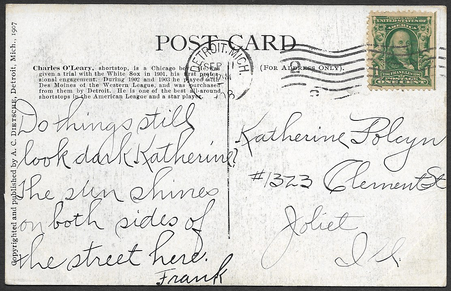 POST CARD
Charles O'Leary, shortstop, is a Chicago
given a trial with the White Sox in 1901, his first
sional engagement. During 1902 and 1903 he played with
Des Moines of the Western League, and was purchased
from them by Detroit. He is one of the best all-around
shortstops in the American League and a star player.
(For Address Only).
DETROIT, MICH.
SEP
Copyrighted and published by A. C. Dietsche, Detroit, Mich., 1907
Do things still
look dark Katherine?
The sun shines
on both sides of
the street here.
Frank
Katherine
#1323 Clement St
Joliet
Ill